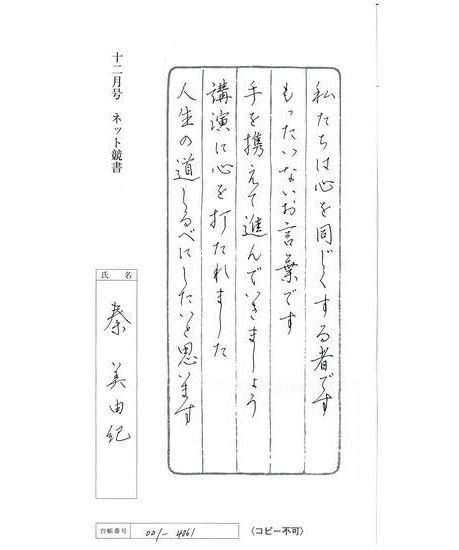 私たちは心を同じくする者です
もったいないお言葉です
手を携えて進んでいきましょう
講演に心を打たれました
人生の道しるべにしたいと思います
十二月号 ネット競書
氏名
秦 美由紀
台帳番号 001-4061
〈コピー不可〉